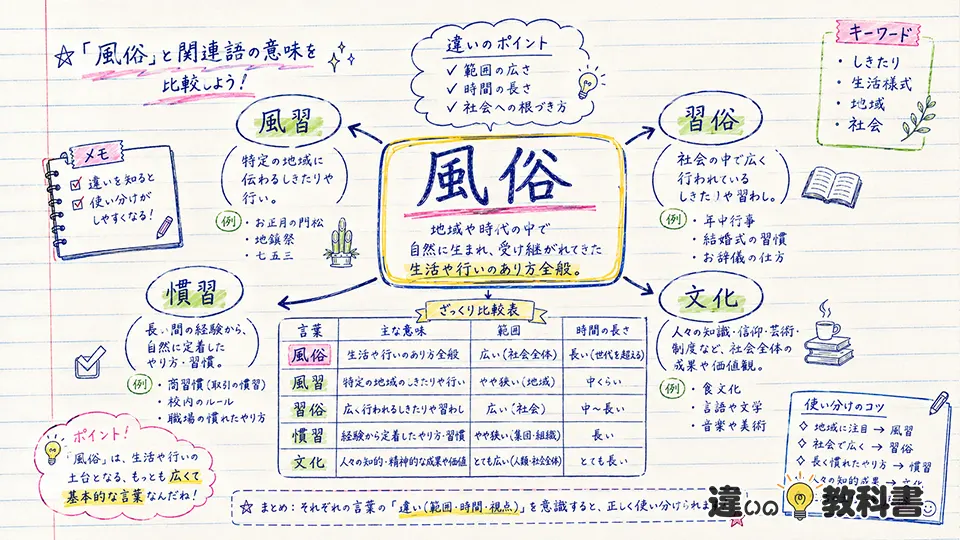 ☆「風俗」と関連語の意味を
比較しよう!
違いのポイント
✓ 範囲の広さ
✓ 時間の長さ
✓ 社会への根づき方
キーワード
・しきたり
・生活様式
・地域
・社会
メモ
違いを知ると
使い分けが
しやすくなる!
風習
特定の地域に
伝わるしきたりや
行い。
例
・お正月の門松
・地鎮祭
・七五三
風俗
地域や時代の中で
自然に生まれ、受け継がれてきた
生活や行いのあり方全般。
習俗
社会の中で広く
行われている
しきたりや習わし。
例
・年中行事
・結婚式の習慣
・お辞儀の仕方
慣習
長い間の経験から、
自然に定着した
やり方・習慣。
例
・商習慣(取引の慣習)
・校内のルール
・職場の慣れたやり方
文化
人々の知識・信仰・芸術・
制度など、社会全体の
成果や価値観。
例
・食文化
・言語や文学
・音楽や美術
ざっくり比較表
言葉 主な意味 範囲 時間の長さ
風俗 生活や行いのあり方全般 広い(社会全体) 長い(世代を超える)
風習 特定の地域のしきたりや行い やや狭い(地域) 中くらい
習俗 広く行われるしきたりや習わし 広い(社会) 中〜長い
慣習 経験から定着したやり方・習慣 やや狭い(集団・組織) 長い
文化 人々の知的・精神的な成果や価値 とても広い(人類・社会全体) とても長い
ポイント!
「風俗」は、生活や行いの
土台となる、もっとも広くて
基本的な言葉なんだね!
使い分けのコツ
◇ 地域に注目 → 風習
◇ 社会で広く → 習俗
◇ 長く慣れたやり方 → 慣習
人々の知的成果 → 文化
☆ まとめ：それぞれの言葉の「違い(範囲・時間・視点)」を意識すると、正しく使い分けられます
違いの教科書